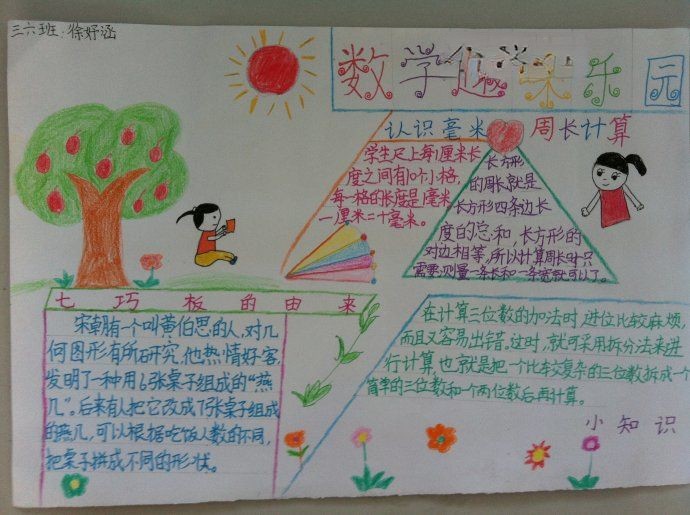 三六班:徐妤涵
数学 乐园
认识毫米
学生尺上每1厘米长
度之间有10个小格,
每一格的长度是1毫米
一厘米=十毫米。
周长计算
长方形
的周长就是
长方形四条边长
度的总和,长方形的
对边相等,所以计算周长时只
需要测量一条长和一条宽就可以了。
七巧板的由来
宋朝有一个叫黄伯思的人,对几
何图形有所研究,他热情好客,
发明了一种用6张桌子组成的“燕
几”。后来有人把它改成7张桌子组成
的燕几,可以根据吃饭人数的不同,
把桌子拼成不同的形状。
在计算三位数的加法时,进位比较麻烦,
而且又容易出错。这时,就可采用拆分法来进
行计算,也就是把一个比较复杂的三位数拆成一个
简单的三位数和一个两位数后再计算。
小知识